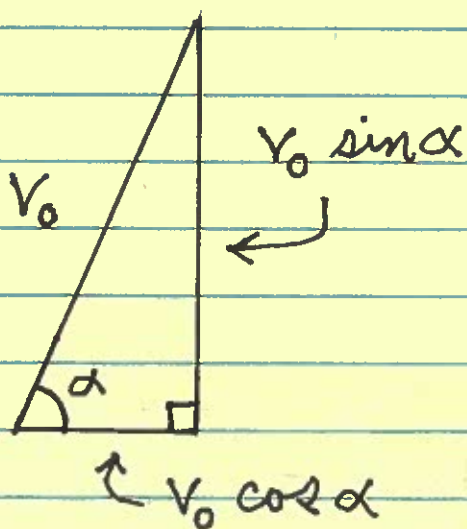 V₀ sin α
V₀
α
V₀ cos α